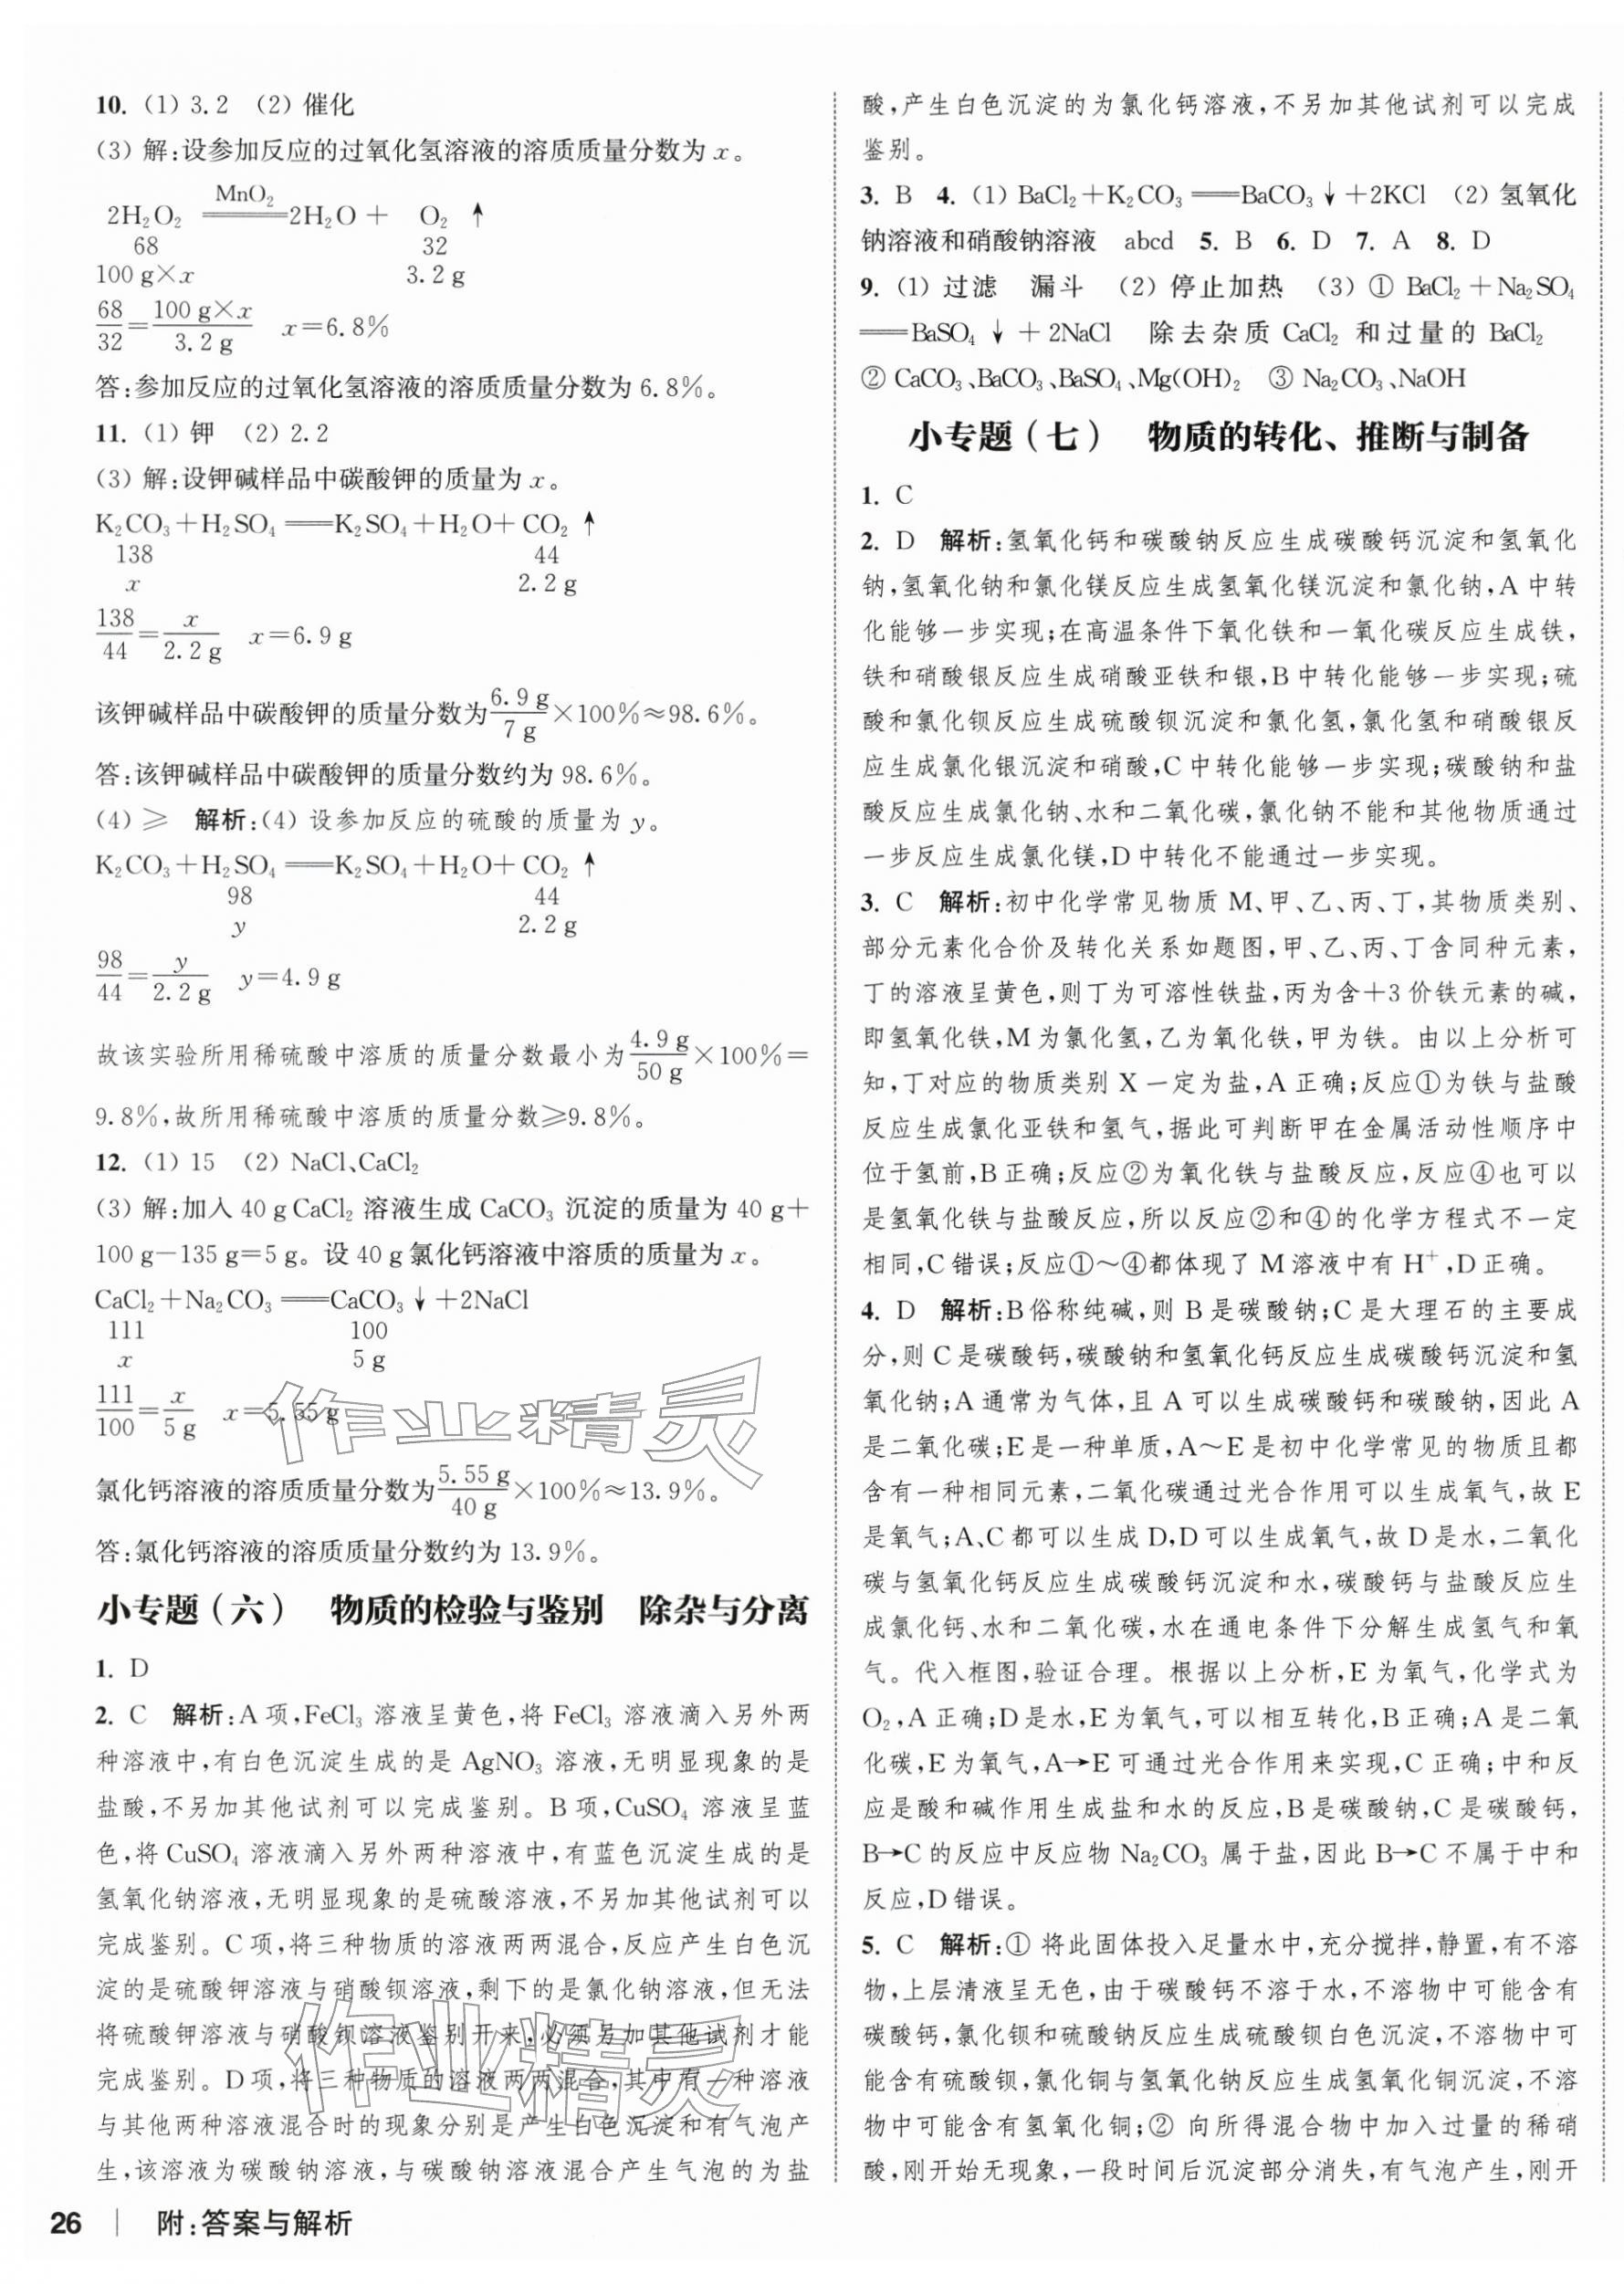 10. (1) 3.2 (2) 催化
(3) 解:设参加反应的过氧化氢溶液的溶质质量分数为 x。
2H₂O₂ =MnO₂= 2H₂O + O₂↑
68 32
100 g×x 3.2 g
68/32 = 100 g×x/3.2 g x=6.8%
答:参加反应的过氧化氢溶液的溶质质量分数为 6.8%。
11. (1) 钾 (2) 2.2
(3) 解:设钾碱样品中碳酸钾的质量为 x。
K₂CO₃+H₂SO₄══K₂SO₄+H₂O+CO₂↑
138 44
x 2.2 g
138/44 = x/2.2 g x=6.9 g
该钾碱样品中碳酸钾的质量分数为 6.9 g/7 g ×100%≈98.6%。
答:该钾碱样品中碳酸钾的质量分数约为 98.6%。
(4) ≥ 解析:(4) 设参加反应的硫酸的质量为 y。
K₂CO₃+H₂SO₄══K₂SO₄+H₂O+CO₂↑
98 44
y 2.2 g
98/44 = y/2.2 g y=4.9 g
故该实验所用稀硫酸中溶质的质量分数最小为 4.9 g/50 g ×100%=
9.8%,故所用稀硫酸中溶质的质量分数≥9.8%。
12. (1) 15 (2) NaCl、CaCl₂
(3) 解:加入 40 g CaCl₂ 溶液生成 CaCO₃ 沉淀的质量为 40 g+
100 g−135 g=5 g。设 40 g 氯化钙溶液中溶质的质量为 x。
CaCl₂+Na₂CO₃══CaCO₃↓+2NaCl
111 100
x 5 g
111/100 = x/5 g x=5.55 g
氯化钙溶液的溶质质量分数为 5.55 g/40 g ×100%≈13.9%。
答:氯化钙溶液的溶质质量分数约为 13.9%。
小专题(六) 物质的检验与鉴别 除杂与分离
1. D
2. C 解析:A 项,FeCl₃ 溶液呈黄色,将 FeCl₃ 溶液滴入另外两
种溶液中,有白色沉淀生成的是 AgNO₃ 溶液,无明显现象的是
盐酸,不另加其他试剂可以完成鉴别。B 项,CuSO₄ 溶液呈蓝
色,将 CuSO₄ 溶液滴入另外两种溶液中,有蓝色沉淀生成的是
氢氧化钠溶液,无明显现象的是硫酸溶液,不另加其他试剂可以
完成鉴别。C 项,将三种物质的溶液两两混合,反应产生白色沉
淀的是硫酸钾溶液与硝酸钡溶液,剩下的是氯化钠溶液,但无法
将硫酸钾溶液与硝酸钡溶液鉴别开来,必须另加其他试剂才能
完成鉴别。D 项,将三种物质的溶液两两混合,其中有一种溶液
与其他两种溶液混合时的现象分别是产生白色沉淀和有气泡产
生,该溶液为碳酸钠溶液,与碳酸钠溶液混合产生气泡的为盐
酸,产生白色沉淀的为氯化钙溶液,不另加其他试剂可以完成
鉴别。
3. B 4. (1) BaCl₂+K₂CO₃══BaCO₃↓+2KCl (2) 氢氧化
钠溶液和硝酸钠溶液 abcd 5. B 6. D 7. A 8. D
9. (1) 过滤 漏斗 (2) 停止加热 (3) ① BaCl₂+Na₂SO₄
══BaSO₄↓+2NaCl 除去杂质 CaCl₂ 和过量的 BaCl₂
② CaCO₃、BaCO₃、BaSO₄、Mg(OH)₂ ③ Na₂CO₃、NaOH
小专题(七) 物质的转化、推断与制备
1. C
2. D 解析:氢氧化钙和碳酸钠反应生成碳酸钙沉淀和氢氧化
钠,氢氧化钠和氯化镁反应生成氢氧化镁沉淀和氯化钠,A 中转
化能够一步实现;在高温条件下氧化铁和一氧化碳反应生成铁,
铁和硝酸银反应生成硝酸亚铁和银,B 中转化能够一步实现;硫
酸和氯化钡反应生成硫酸钡沉淀和氯化氢,氯化氢和硝酸银反
应生成氯化银沉淀和硝酸,C 中转化能够一步实现;碳酸钠和盐
酸反应生成氯化钠、水和二氧化碳,氯化钠不能和其他物质通过
一步反应生成氯化镁,D 中转化不能通过一步实现。
3. C 解析:初中化学常见物质 M、甲、乙、丙、丁,其物质类别、
部分元素化合价及转化关系如题图,甲、乙、丙、丁含同种元素,
丁的溶液呈黄色,则丁为可溶性铁盐,丙为含+3 价铁元素的碱,
即氢氧化铁,M 为氯化氢,乙为氧化铁,甲为铁。由以上分析可
知,丁对应的物质类别 X 一定为盐,A 正确;反应①为铁与盐酸
反应生成氯化亚铁和氢气,据此可判断甲在金属活动性顺序中
位于氢前,B 正确;反应②为氧化铁与盐酸反应,反应④也可以
是氢氧化铁与盐酸反应,所以反应②和④的化学方程式不一定
相同,C 错误;反应①～④都体现了 M 溶液中有 H⁺,D 正确。
4. D 解析:B 俗称纯碱,则 B 是碳酸钠;C 是大理石的主要成
分,则 C 是碳酸钙,碳酸钠和氢氧化钙反应生成碳酸钙沉淀和氢
氧化钠;A 通常为气体,且 A 可以生成碳酸钙和碳酸钠,因此 A
是二氧化碳;E 是一种单质,A～E 是初中化学常见的物质且都
含有一种相同元素,二氧化碳通过光合作用可以生成氧气,故 E
是氧气;A、C 都可以生成 D,D 可以生成氧气,故 D 是水,二氧化
碳与氢氧化钙反应生成碳酸钙沉淀和水,碳酸钙与盐酸反应生
成氯化钙、水和二氧化碳,水在通电条件下分解生成氢气和氧
气。代入框图,验证合理。根据以上分析,E 为氧气,化学式为
O₂,A 正确;D 是水,E 为氧气,可以相互转化,B 正确;A 是二氧
化碳,E 为氧气,A→E 可通过光合作用来实现,C 正确;中和反
应是酸和碱作用生成盐和水的反应,B 是碳酸钠,C 是碳酸钙,
B→C 的反应中反应物 Na₂CO₃ 属于盐,因此 B→C 不属于中和
反应,D 错误。
5. C 解析:① 将此固体投入足量水中,充分搅拌,静置,有不溶
物,上层清液呈无色,由于碳酸钙不溶于水,不溶物中可能含有
碳酸钙,氯化钡和硫酸钠反应生成硫酸钡白色沉淀,不溶物中可
能含有硫酸钡,氯化铜与氢氧化钠反应生成氢氧化铜沉淀,不溶
物中可能含有氢氧化铜;② 向所得混合物中加入过量的稀硝
酸,刚开始无现象,一段时间后沉淀部分消失,有气泡产生,刚开
26 附:答案与解析
作业精灵
作业精灵